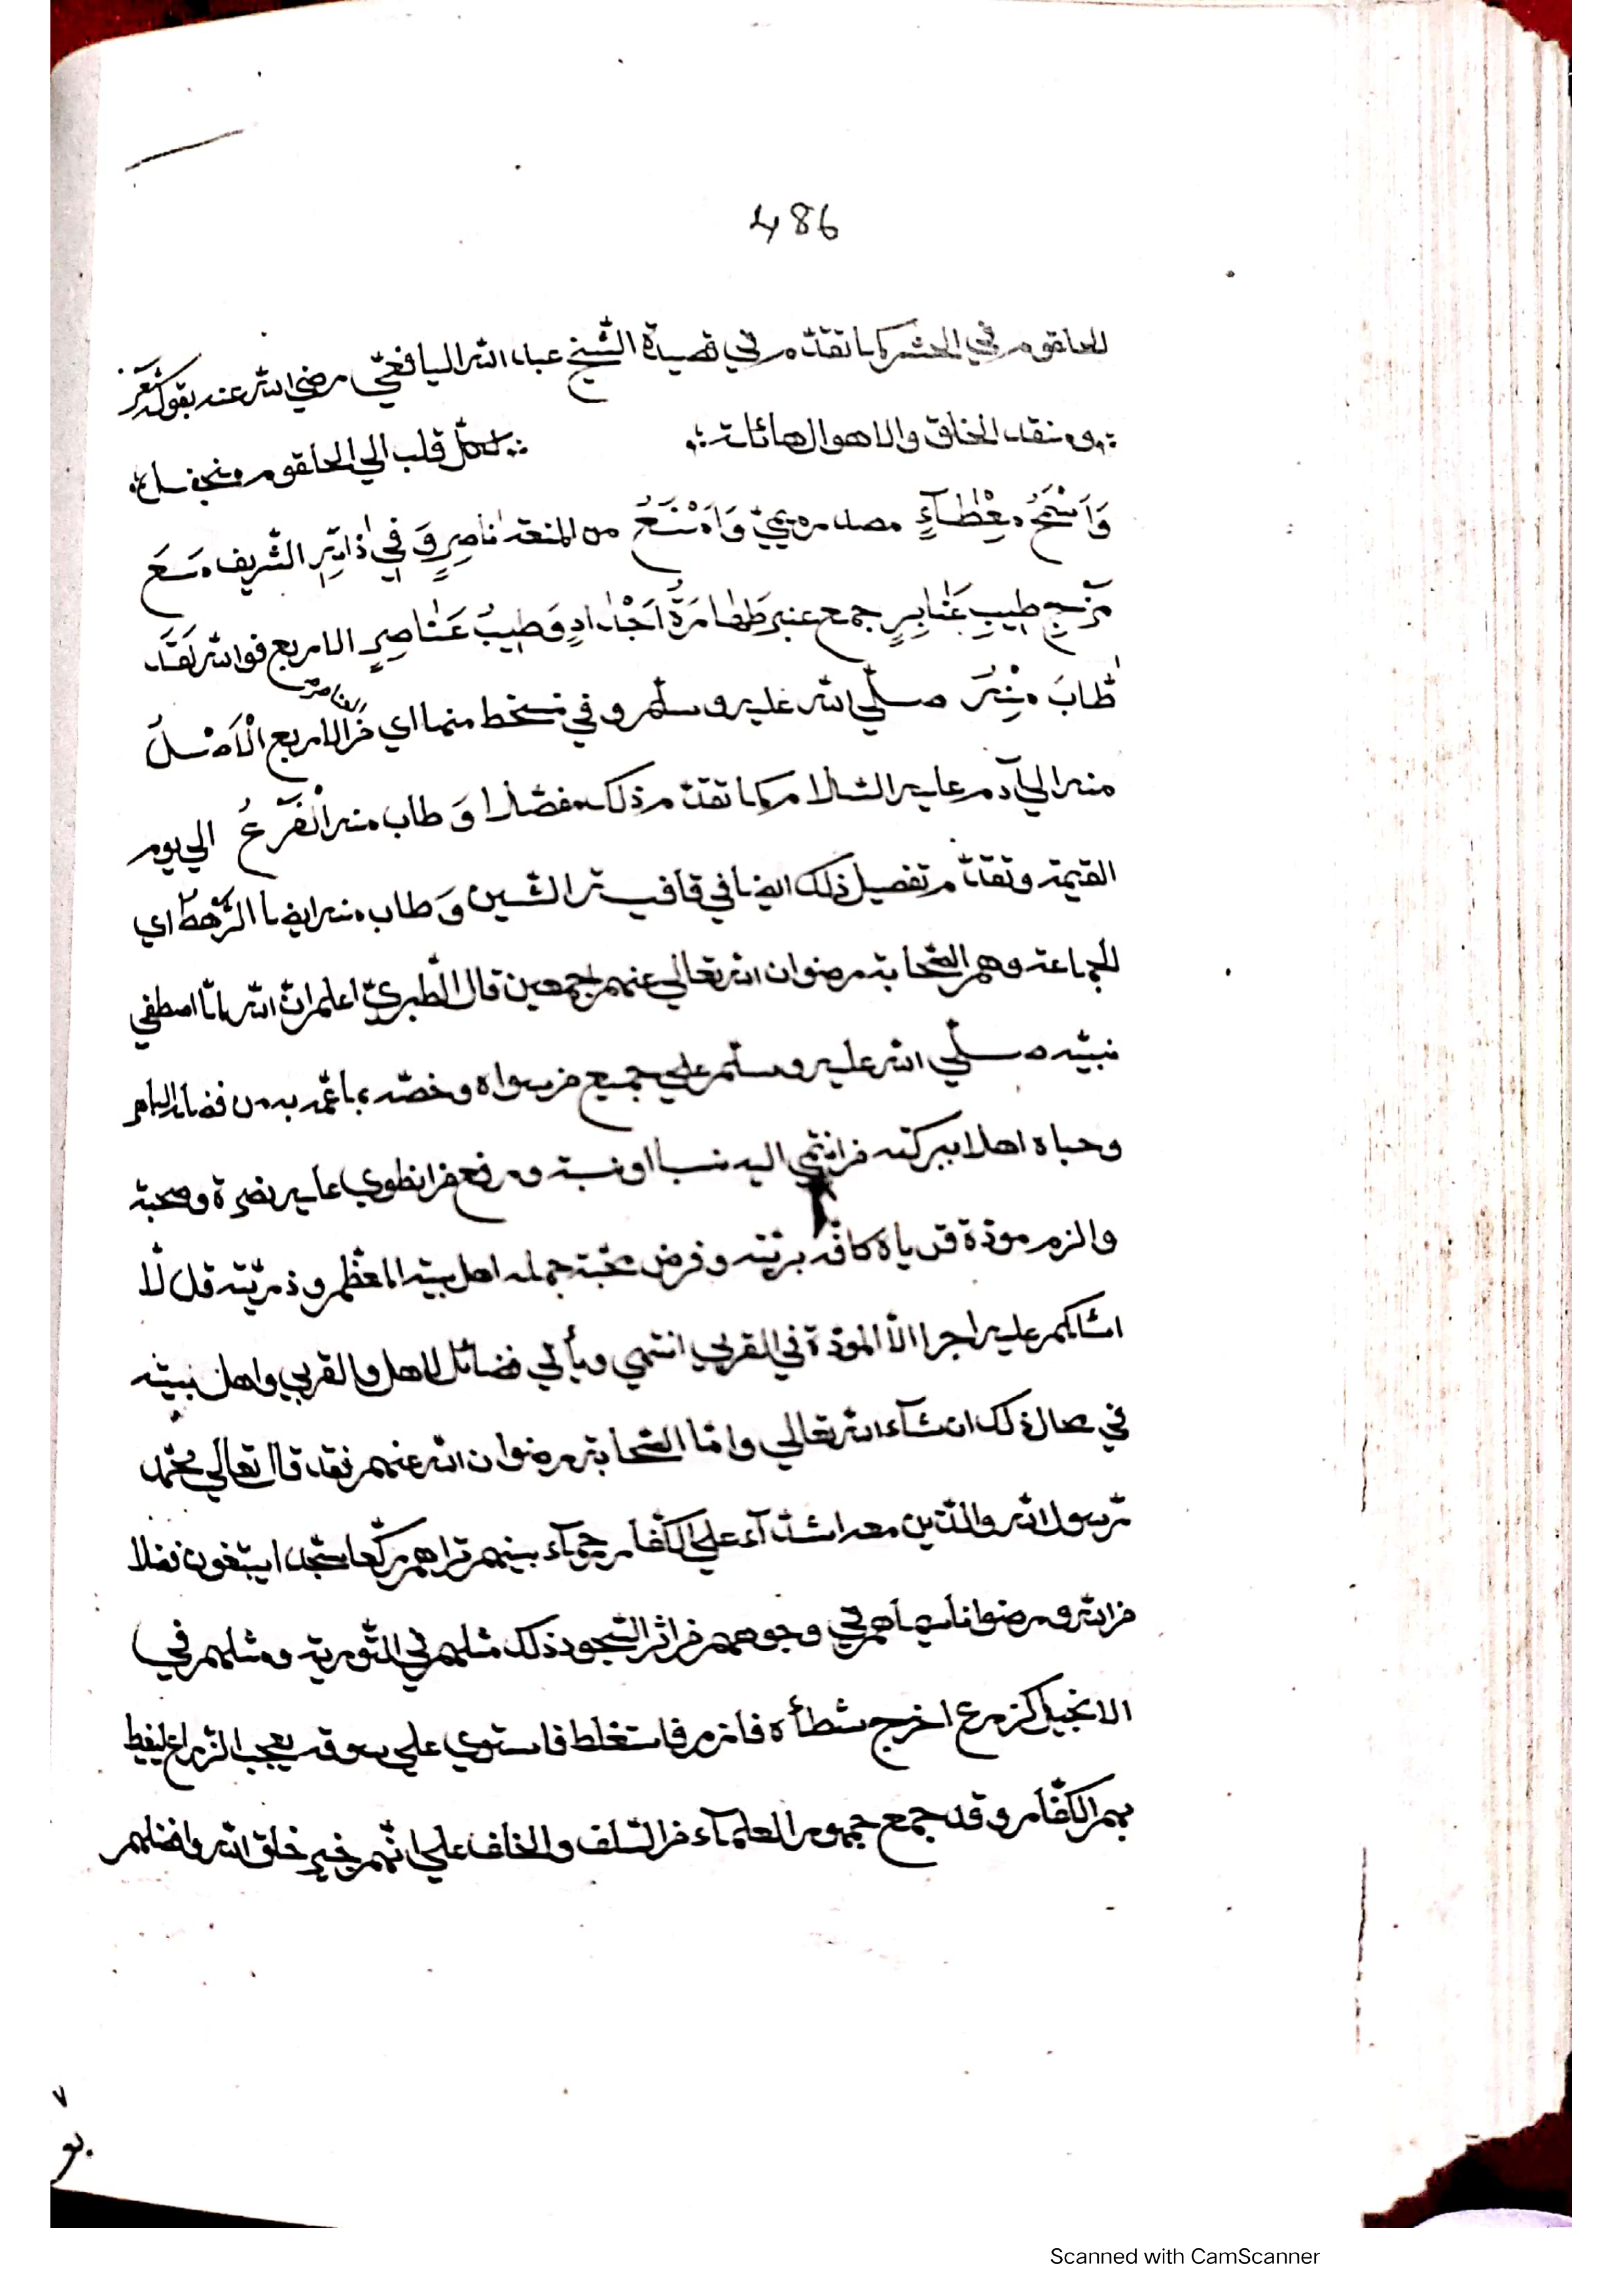 486
الحلقوم في الحشر كما تقدّم في قصيدة الشّيخ عبد الله اليافعيّ رضي الله عنه بقوله شعر
ومنقذ الخلق والاهوال هائلة كلّ قلب الي الحلقوم
وَاَسْمَحُ مِعْطَآءٍ مصدر ميميّ وَاَمْنَعُ من المنعة نَاصِرٍ وَفِي ذَاتِهِ الشّريف
مَزْجِ طِيبِ عَنَابِرٍ جمع عنبر طَهَارَةُ اَجْدَادٍ وَطِيبُ عَنَاصِرٍ الاربع فوالله لَقَدْ
طَابَ مِنْهُ صلّي الله عليه وسلّم وفي نسخط منها اي من الاربع الْاَصْلُ
العناصر
منه الي آدم عليه السّلام كما تقدّم ذلك مفصّلا وَطاب منه الْفَرْعُ الي يوم
القيمة وتقدّم تفصيل ذلك ايضا في قافية الشّين وَطاب منه ايضا الرَّهْطُ اي
الجماعة وهم الصّحابة رضوان الله تعالي عنهم اجمعين قال الطّبريّ اعلم انّ الله لمّا اصطفي
نبيّه صلّي الله عليه وسلّم علي جميع من سواه وخصّه بما عمّه به من فضله الباهر
وحباه اهلا ببركته من انتمي اليه نسبا او نسبة ورفع من انطوي عليه نصرة وصحبة
والزم مودّة قرباه كافّة بريّته وفرض محبّة جملة اهل بيته المعظّم وذرّيّته قل لّا
اسالكم عليه اجرا الّا المودّة في القربي انتهي ويأتي فضائل الاهل والقربي واهل نبيّه
في محال ذلك ان شآء الله تعالي وامّا الصّحابة رضوان الله عنهم فقد قال تعالي محمّد
رّسول الله والّذين معه اشدّآء علي الكفّار رحمآء بينهم تراهم ركّعا سّجّدا يبتغون فضلا
من الله ورضوانا سيماهم في وجوههم من اثر السّجود ذلك مثلهم في التّورية ومثلهم في
الانجيل كزرع اخرج شطأه فازره فاستغلظ فاستوي علي سوقه يعجب الزّراع ليغيظ
بهم الكفّار وقد جمع جمهور العلمآء من السّلف والخلف علي انّهم خير خلق الله وافضلهم
٧
Scanned with CamScanner